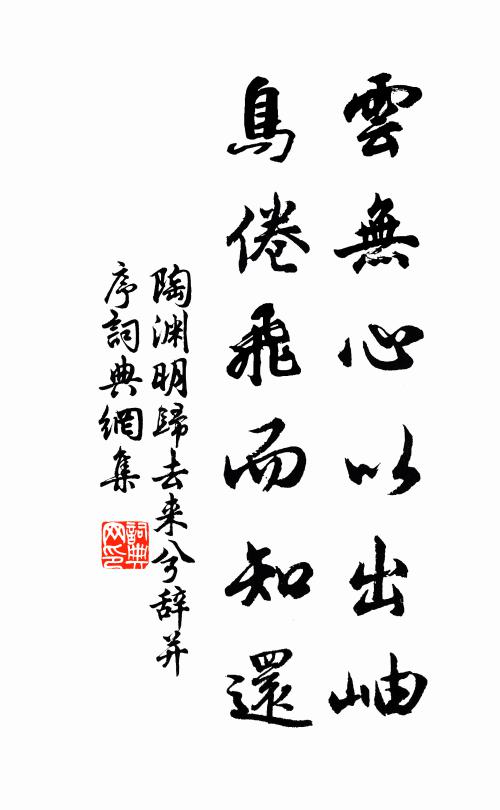 雲無心以出岫
鳥倦飛而知還
陶渊明歸去来兮辞并
序詞典網集
詞典网印